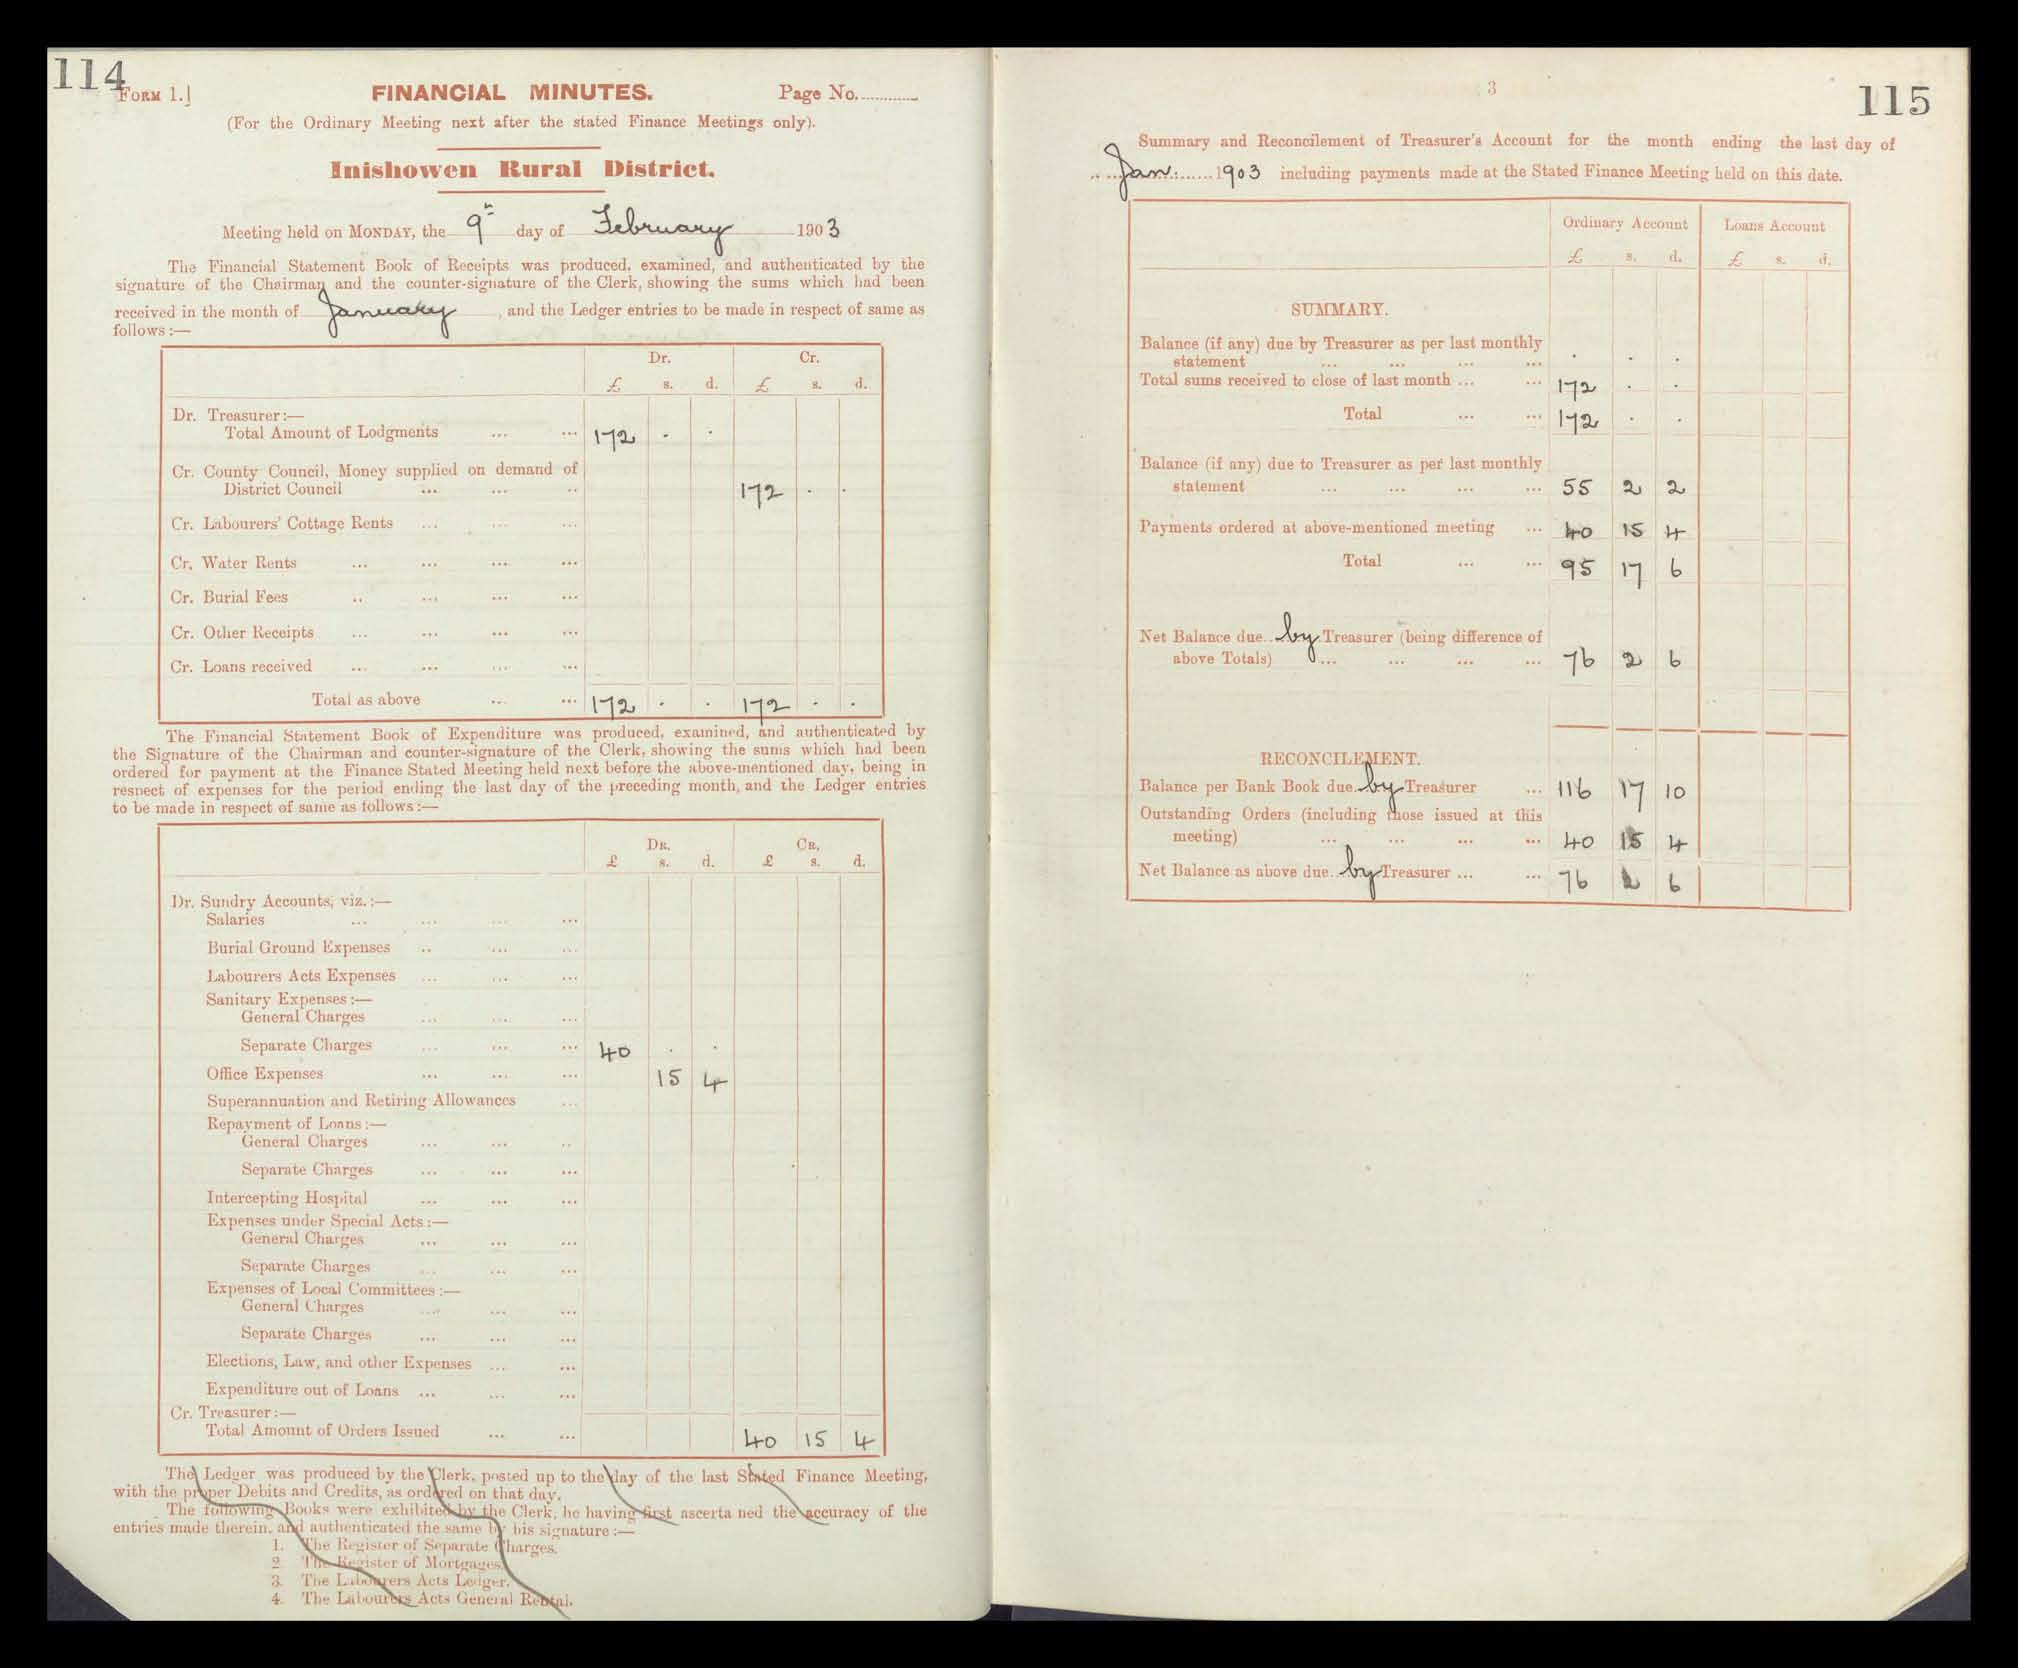 114
FORM 1.]
FINANCIAL MINUTES.
Page No. ............
(For the Ordinary Meeting next after the stated Finance Meetings only).
Inishowen Rural District.
Meeting held on MONDAY, the 9th day of February 1903
The Financial Statement Book of Receipts was produced, examined, and authenticated by the
signature of the Chairman and the counter-signature of the Clerk, showing the sums which had been
received in the month of January, and the Ledger entries to be made in respect of same as
follows :—
Dr. Cr.
£ s. d. £ s. d.
Dr. Treasurer:—
Total Amount of Lodgments ... ... 172 . .
Cr. County Council, Money supplied on demand of
District Council ... ... .. 172 . .
Cr. Labourers' Cottage Rents ... ... ...
Cr. Water Rents ... ... ... ...
Cr. Burial Fees .. ... ... ...
Cr. Other Receipts ... ... ... ...
Cr. Loans received ... ... ... ...
Total as above ... ... 172 . . 172 . .
The Financial Statement Book of Expenditure was produced, examined, and authenticated by
the Signature of the Chairman and counter-signature of the Clerk, showing the sums which had been
ordered for payment at the Finance Stated Meeting held next before the above-mentioned day, being in
respect of expenses for the period ending the last day of the preceding month, and the Ledger entries
to be made in respect of same as follows :—
DR. CR.
£ s. d. £ s. d.
Dr. Sundry Accounts, viz. :—
Salaries ... ... ... ...
Burial Ground Expenses .. ... ...
Labourers Acts Expenses ... ... ...
Sanitary Expenses :—
General Charges ... ... ...
Separate Charges ... ... ... 40 . .
Office Expenses ... ... ... 15 4
Superannuation and Retiring Allowances ...
Repayment of Loans :—
General Charges ... ... ..
Separate Charges ... ... ...
Intercepting Hospital ... ... ...
Expenses under Special Acts :—
General Charges ... ... ...
Separate Charges ... ... ...
Expenses of Local Committees :—
General Charges ... ... ...
Separate Charges ... ... ...
Elections, Law, and other Expenses ... ...
Expenditure out of Loans ... ... ...
Cr. Treasurer :—
Total Amount of Orders Issued ... ... 40 15 4
The Ledger was produced by the Clerk, posted up to the day of the last Stated Finance Meeting,
with the proper Debits and Credits, as ordered on that day.
The following Books were exhibited by the Clerk, he having first ascerta ned the accuracy of the
entries made therein, and authenticated the same by his signature :—
1. The Register of Separate Charges.
2. The Register of Mortgages.
3. The Labourers Acts Ledger.
4. The Labourers Acts General Rental.
3
115
Summary and Reconcilement of Treasurer's Account for the month ending the last day of
Jan: 1903 including payments made at the Stated Finance Meeting held on this date.
Ordinary Account Loans Account
£ s. d. £ s. d.
SUMMARY.
Balance (if any) due by Treasurer as per last monthly
statement ... ... ... ... . . .
Total sums received to close of last month ... ... 172 . .
Total ... ... 172 . .
Balance (if any) due to Treasurer as per last monthly
statement ... ... ... ... 55 2 2
Payments ordered at above-mentioned meeting ... 40 15 4
Total ... ... 95 17 6
Net Balance due by Treasurer (being difference of
above Totals) ... ... ... ... 76 2 6
RECONCILEMENT.
Balance per Bank Book due by Treasurer ... 116 17 10
Outstanding Orders (including those issued at this
meeting) ... ... ... ... 40 15 4
Net Balance as above due by Treasurer ... ... 76 2 6